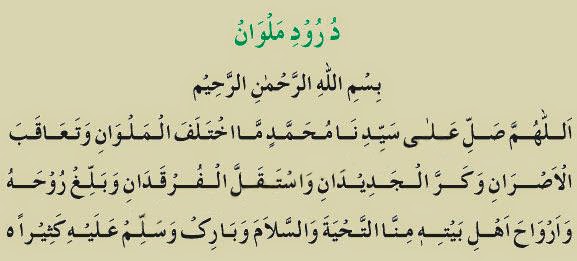 دُرُوْدِ مَلْوَانْ
بِسْمِ اللهِ الرَّحْمٰنِ الرَّحِيْمِ
اَللّٰهُمَّ صَلِّ عَلٰى سَيِّدِنَا مُحَمَّدٍ مَّا اخْتَلَفَ الْمَلْوَانِ وَتَعَاقَبَ
الْاَصْرَانِ وَكَرَّ الْجَدِيْدَانِ وَاسْتَقَلَّ الْفُرْقَدَانِ وَبَلِّغْ رُوْحَهُ
وَاَرْوَاحَ اَهْلِ بَيْتِهٖ مِنَّا التَّحْيَةَ وَالسَّلَامَ وَبَارِکْ وَسَلِّمْ عَلَيْهِ كَثِيْراً ه